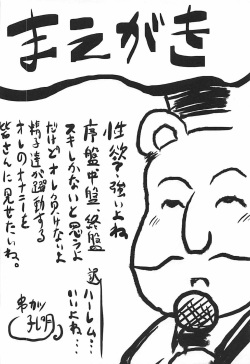 まえがき
性欲?強いよね
序盤中盤終盤
スキしかないと思うよ
だけどオレ負けないよ
精子達が躍動する
オレのオナニーを
皆さんに見せたいね。
逆ハーレム…
いいよね…